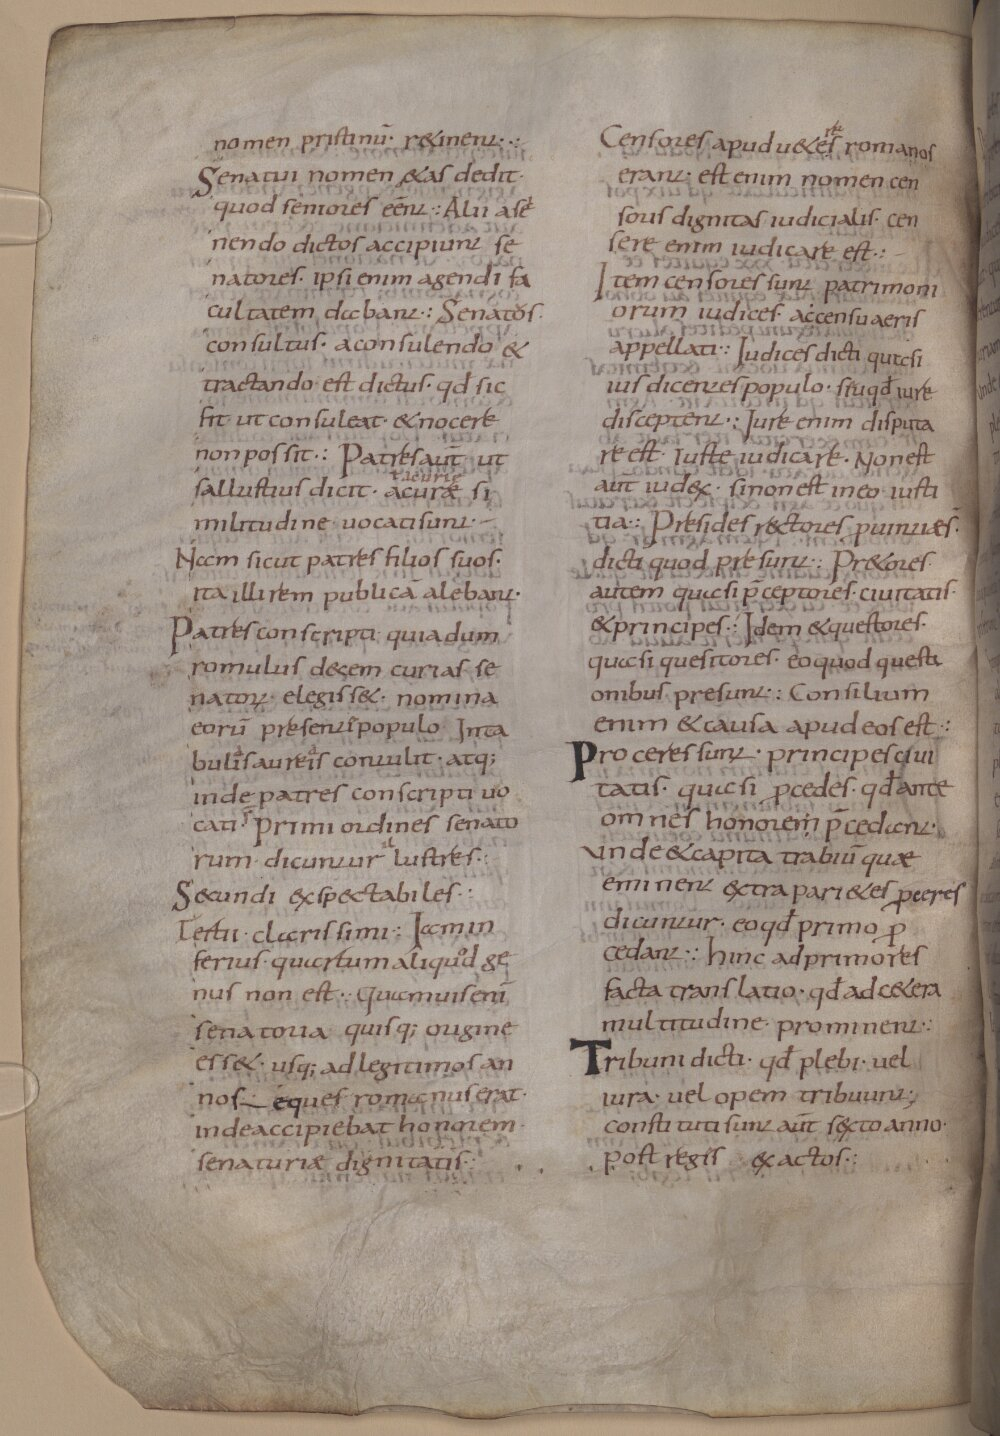 nomen pristinū· retinent·:
Senatui nomen &as dedit·
quod seniores eēnt·: Alii a se
nendo dictos accipiunt se
natores· ipsi enim agendi fa
cultatem dabant·: Senatos
consultus· a consulendo &
tractando est dictus· qđ sic
fit ut consuleat· & nocere
non possit·: Patres aūt ut
sallustius dicit· a curae si
militudine uocati sunt·
Nam sicut patres filios suos·
ita illi rem publicā alebant·
Patres conscripti quia dum
romulus decem curias se
nator elegiss&· nomina
eorū presenti populo In ta
bulis aureis contulit· atq;
inde patres conscripti uo
cati· Primi ordines senato
rum· dicuntur illustres·:
Secundi exspectabiles·:
Tertii· clarissimi·: Iam in
ferius· quartum aliquod ge
nus non est·: Quamuis enī
senatoria quisq; origine
ess&· usq; ad legitimos an
nos· eques romanus erat·
inde accipiebat honorem·
senaturiae dignitatis·:
Censores apud u&eres romanos
erant· est enim nomen cen
soris dignitas iudicialis· cen
sere enim iudicare est·:
Item censores sunt patrimoni
orum iudices· a censu aeris
appellati·: Iudices dicti quasi
ius dicentes populo· siuqđ iure
disceptent·: Iure enim disputa
re est· Iuste iudicare· Non est
aūt iudex· si non est in eo iusti
tia·: Presides rectores
dicti quod presunt·: Pr&ores·
autem quasi p̄ceptores· ciuitatis·
& principes·: Idem & questores·
quasi quesitores· eo quod questi
onibus presunt·: Consilium
enim & causa apud eos est·:
Proceres sunt· principes ciui
tatis· quasi pcedes· qđ ante
omnes honorem p̄cedant·
Vnde & capita trabiū quae
eminent extra pari&es pceres
dicuntur· eo qđ primo p
cedant·: hinc ad primores
facta translatio· qđ a c&era
multitudine· prominent·:
Tribuni dicti· qđ plebi· uel
iura· uel opem tribuunt;
constituti sunt aūt sexto anno·
post reges exactos·: